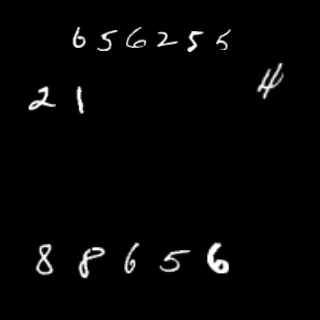 656255
21 4
88656